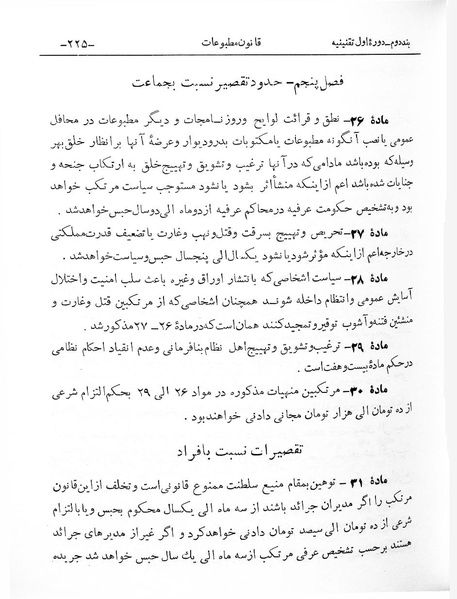 بند دوم - دورهٔ اول تقنینیه
قانون مطبوعات
-۲۲۵-
فصل پنجم - حدود تقصیر نسبت بجماعت
مادهٔ ۲۶ - نطق و قرائت لوایح و روزنامجات و دیگر مطبوعات در محافل
عمومی یا نصب آنگونه مطبوعات یا مکتوبات بدر و دیوار و عرضهٔ آنها بر انظار خلق بهر
وسیله که بوده باشد مادامی که در آنها ترغیب و تشویق و تهییج خلق به ارتکاب جنحه و
جنایات شده باشد اعم از اینکه منشأ اثر بشود یا نشود مستوجب سیاست مرتکب خواهد
بود و به تشخیص حکومت عرفیه در محاکم عرفیه از دو ماه الی دو سال حبس خواهد شد.
مادهٔ ۲۷ - تحریص و تهییج بسرقت و قتل و نهب و غارت یا تضعیف قدرت مملکتی
در خارجه اعم از اینکه مؤثر شود یا نشود یک سال الی پنجسال حبس و سیاست خواهد شد.
مادهٔ ۲۸ - سیاست اشخاصی که با نتشار اوراق و غیره باعث سلب امنیت و اختلال
آسایش عمومی و انتظام داخله شوند همچنان اشخاصی که از مرتکبین قتل و غارت و
منشئین فتنه و آشوب توقیر و تمجید کنند همان است که در مادهٔ ۲۶ - ۲۷ مذکور شد.
مادهٔ ۲۹ - ترغیب و تشویق و تهییج اهل نظام بنافرمانی و عدم انقیاد احکام نظامی
در حکم مادهٔ بیست و هفت است.
مادهٔ ۳۰ - مرتکبین منهیات مذکوره در مواد ۲۶ الی ۲۹ بحکم التزام شرعی
از ده تومان الی هزار تومان مجانی دادنی خواهند بود.
تقصیرات نسبت بافراد
مادهٔ ۳۱ - توهین بمقام منیع سلطنت ممنوع قانونی است و تخلف از این قانون
مرتکب را اگر مدیران جرائد باشند از سه ماه الی یکسال محکوم بحبس و یا بالتزام
شرعی از ده تومان الی سیصد تومان دادنی خواهد کرد و اگر غیر از مدیرهای جرائد
هستند بر حسب تشخیص عرفی مرتکب از سه ماه الی یك سال حبس خواهد شد جریده